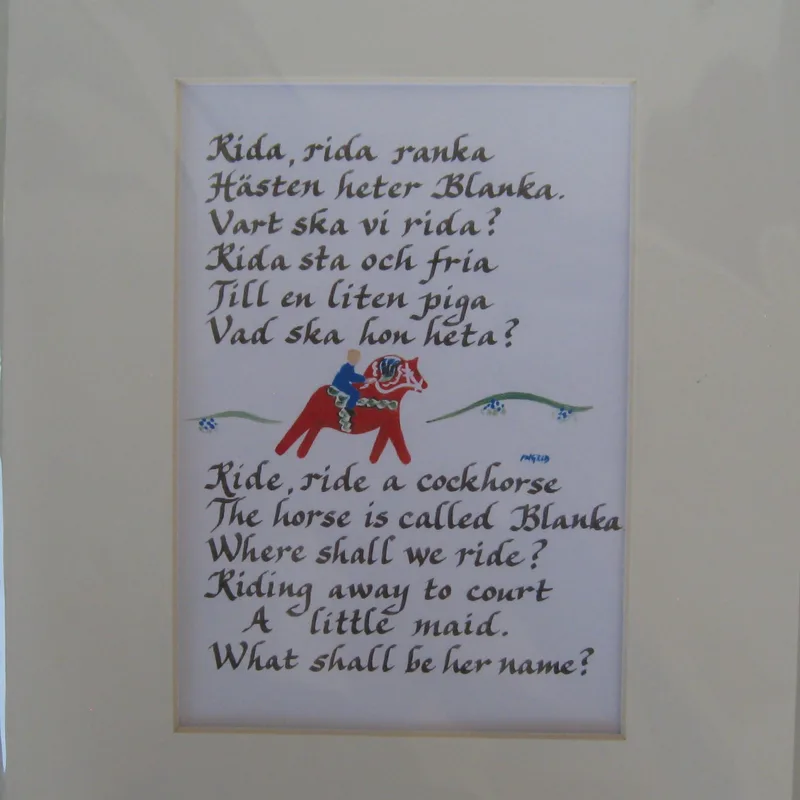 Rida, rida ranka
Hästen heter Blanka.
Vart ska vi rida?
Rida sta och fria
Till en liten piga
Vad ska hon heta?
INGRID
Ride, ride a cockhorse
The horse is called Blanka
Where shall we ride?
Riding away to court
A little maid.
What shall be her name?